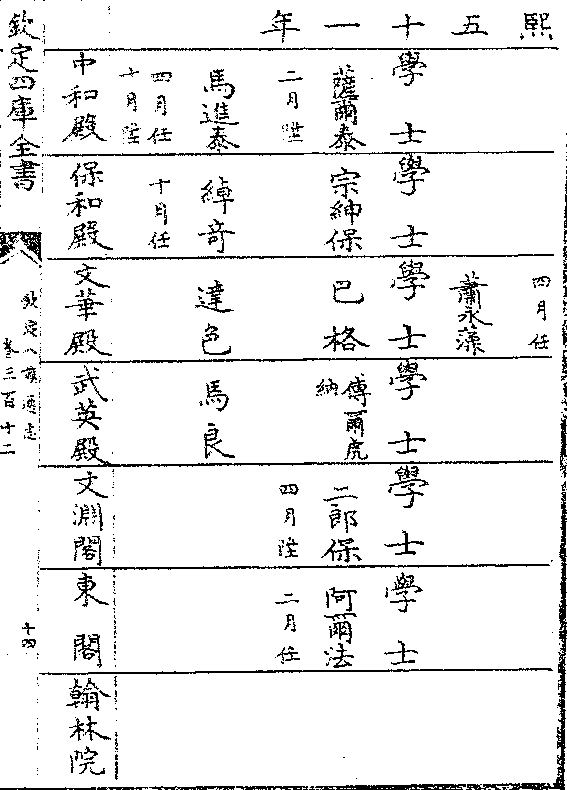 熙五十一年
四月任
蕭永藻
學士 學士 學士 學士 學士 學士
薩爾泰 宗紳保 巴格 傅爾虎納 二郎保 阿爾法
二月陞 四月陞 二月任
馬進泰 綽竒 達色 馬良
四月任 十月任
十月陞
中和殿 保和殿 文華殿 武英殿 文淵閣 東閣 翰林院
欽定四庫全書
欽定八旗通志
卷三百十二
十四